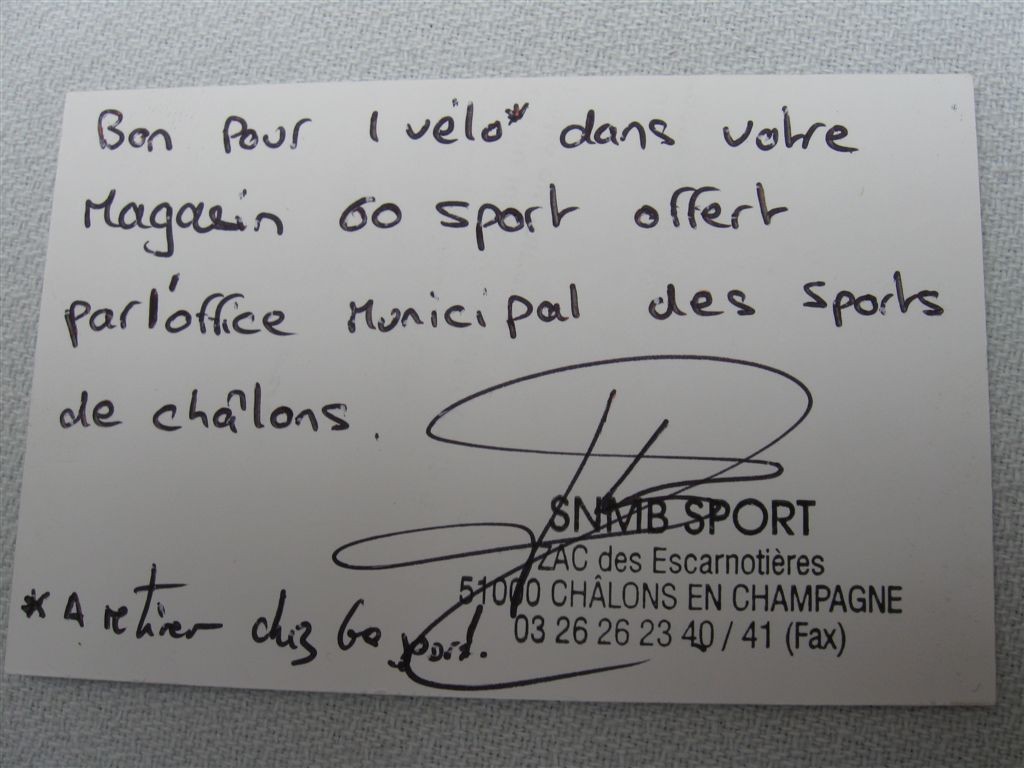 Bon pour 1 vélo* dans votre
Magasin GO sport offert
par l'office Municipal des sports
de châlons.
SNMB SPORT
ZAC des Escarnotières
51000 CHÂLONS EN CHAMPAGNE
03 26 26 23 40 / 41 (Fax)
* A retirer chez Go sport.